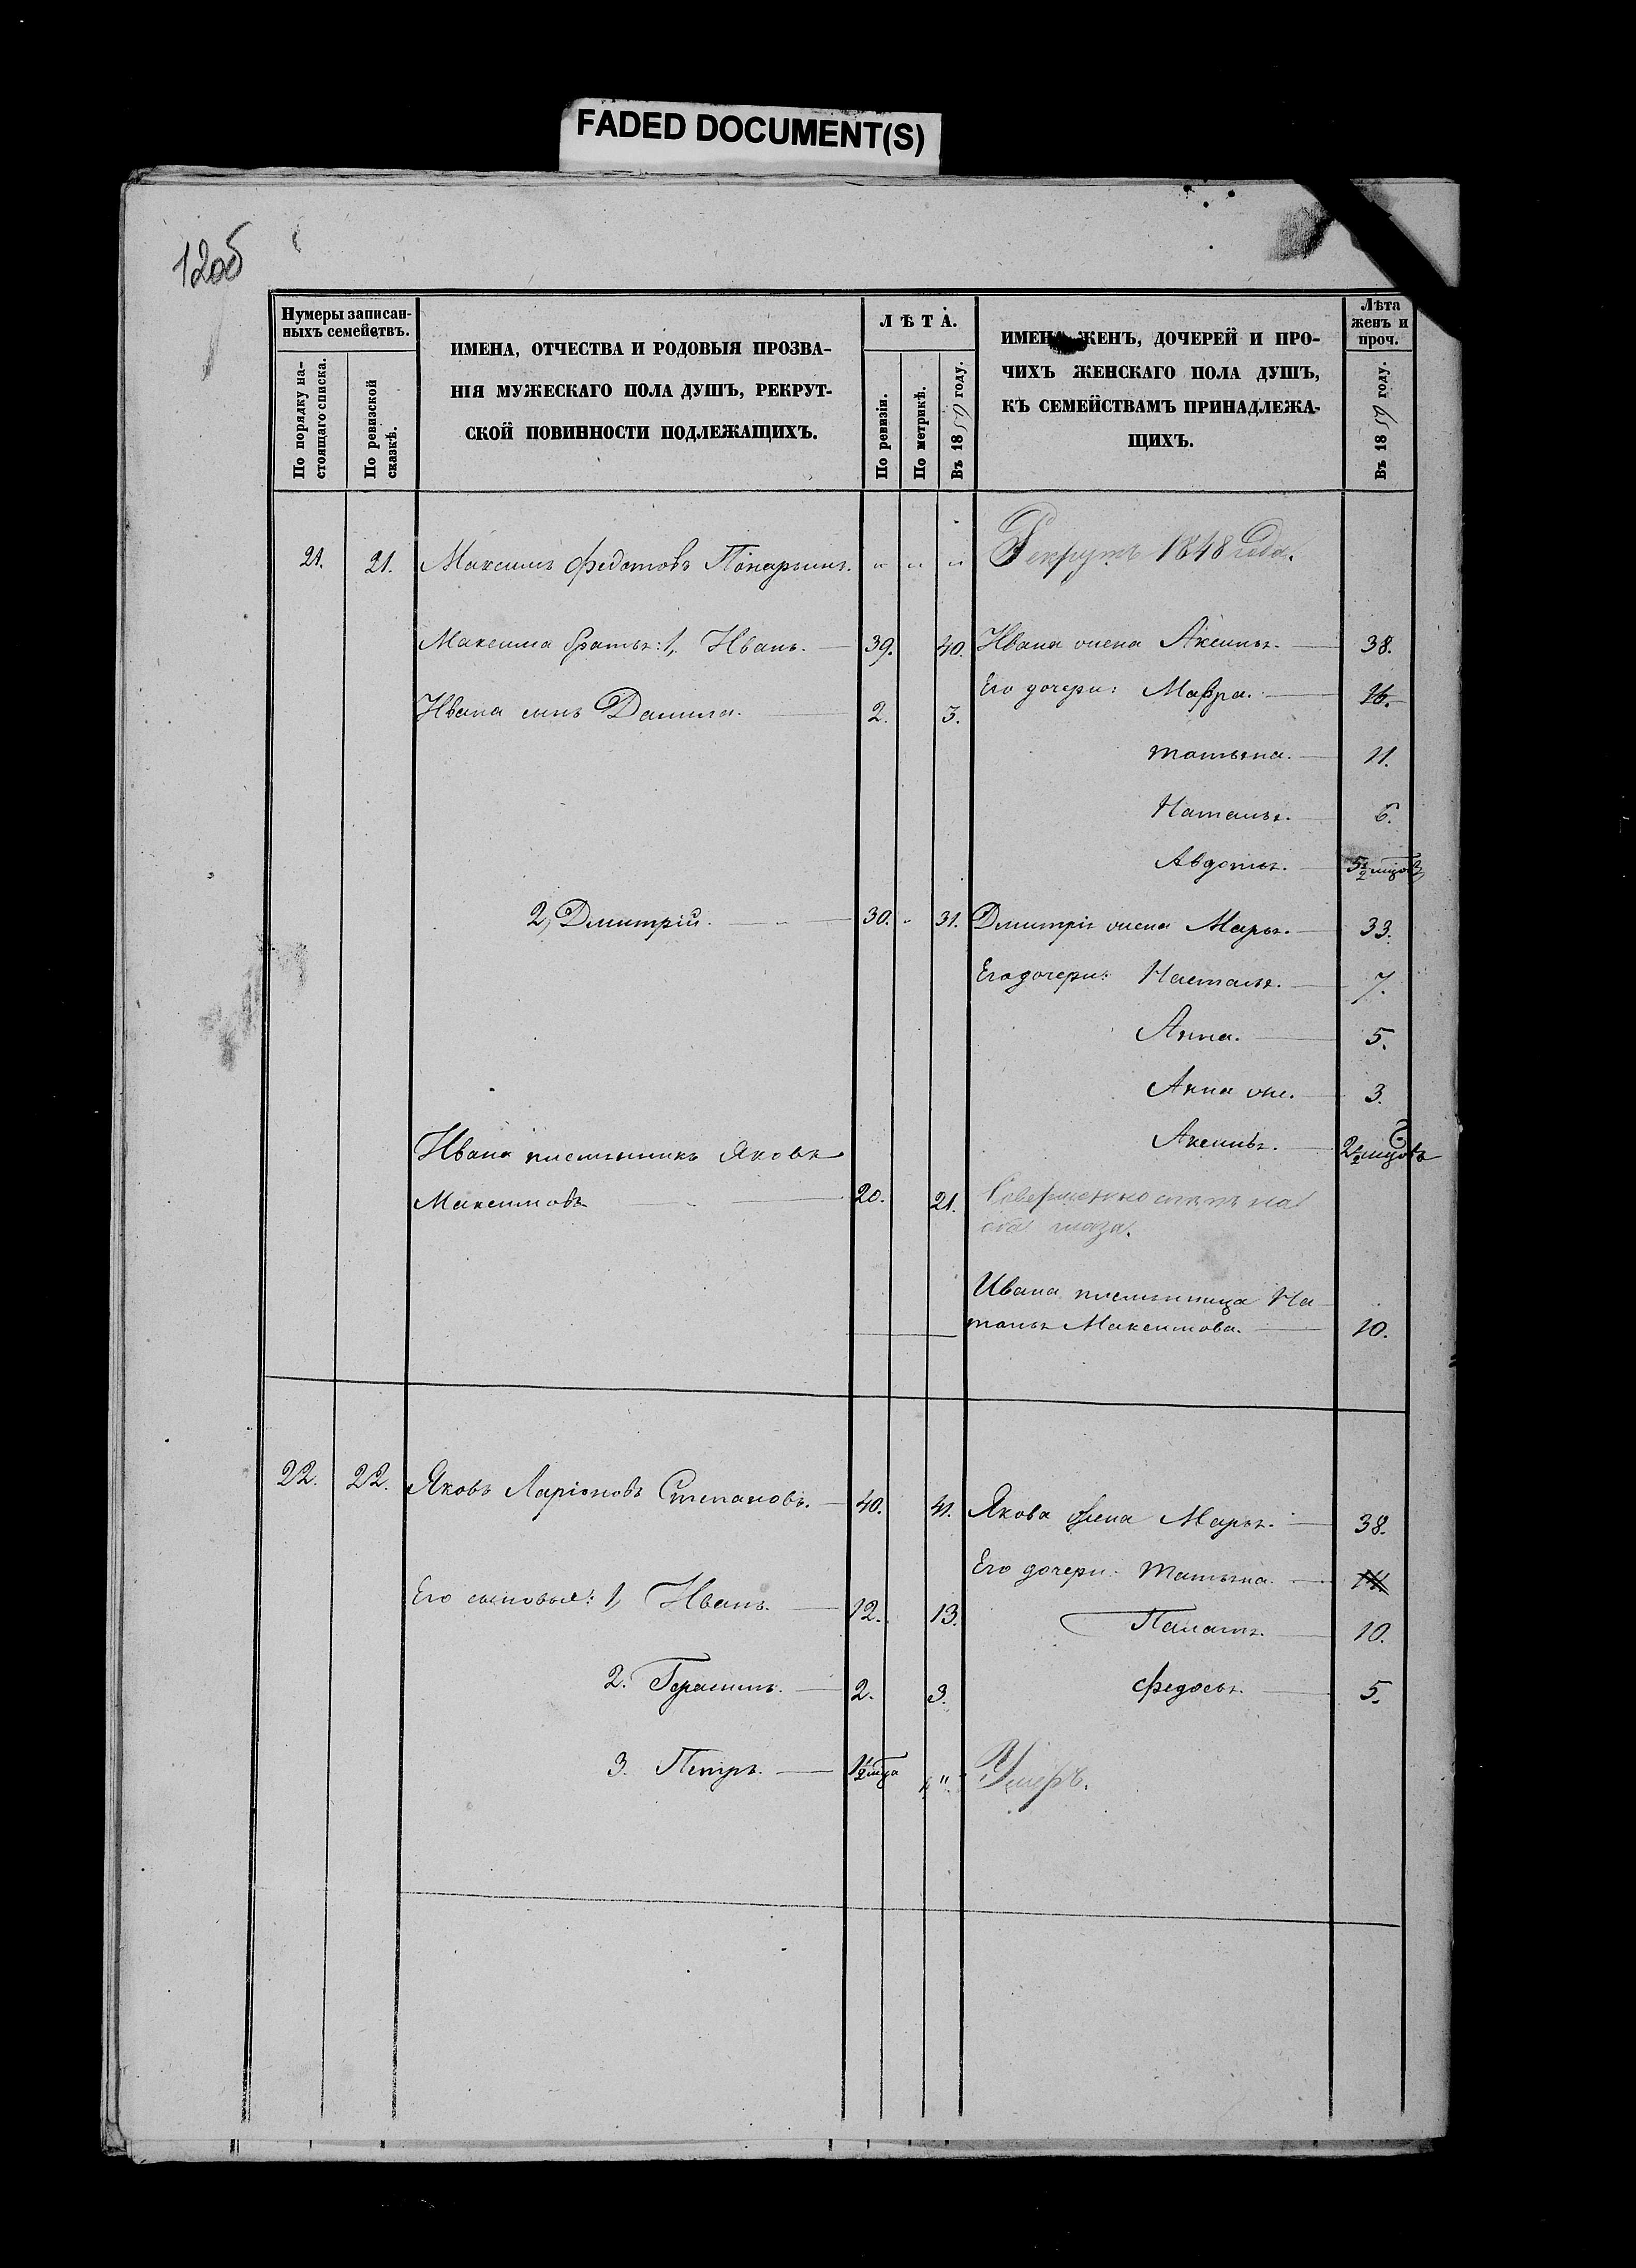 FADED DOCUMENT(S)
12об
Нумеры записан-
ныхъ семействъ.
По порядку на-
стоящаго списка.
По ревизской
сказкѣ.
ИМЕНА, ОТЧЕСТВА И РОДОВЫЯ ПРОЗВА-
НІЯ МУЖЕСКАГО ПОЛА ДУШЪ, РЕКРУТ-
СКОЙ ПОВИННОСТИ ПОДЛЕЖАЩИХЪ.
ЛѢТА.
По ревизіи.
По метрикѣ.
Въ 1859 году.
ИМЕНА ЖЕНЪ, ДОЧЕРЕЙ И ПРО-
ЧИХЪ ЖЕНСКАГО ПОЛА ДУШЪ,
КЪ СЕМЕЙСТВАМЪ ПРИНАДЛЕЖА-
ЩИХЪ.
Лѣта
женъ и
проч.
Въ 1859 году.
21. 21. Максимъ Федотовъ " " " Рекрутъ 1848 года.
Максима братья: 1, Иванъ. 39. 40. Ивана жена Аксинья. 38.
Его дочери: Мавра. 16.
Ивана сынъ Данила. 2. 3.
Татьяна. 11.
Наталья. 6.
Авдотья. 5½ мцовъ
2, Дмитрій. 30. " 31. Дмитрія жена Марья. 33.
Его дочери: Настасья. 7.
Анна. 5.
Анна же. 3.
Аксинья. 2½ мцовъ
Ивана племянникъ Яковъ
Максимовъ 20. 21. Совершенно слѣпъ на
оба глаза.
Ивана племянница На-
талья Максимова. 10.
22. 22. Яковъ Ларіоновъ Степановъ. 40. 41. Якова жена Марья. 38.
Его дочери: Татьяна
Его сыновья: 1, Иванъ. 12. 13.
Палагѣя. 10.
2. Герасимъ. 2. 3. Федосья. 5.
3. Петръ. 1½ мца " Умеръ.